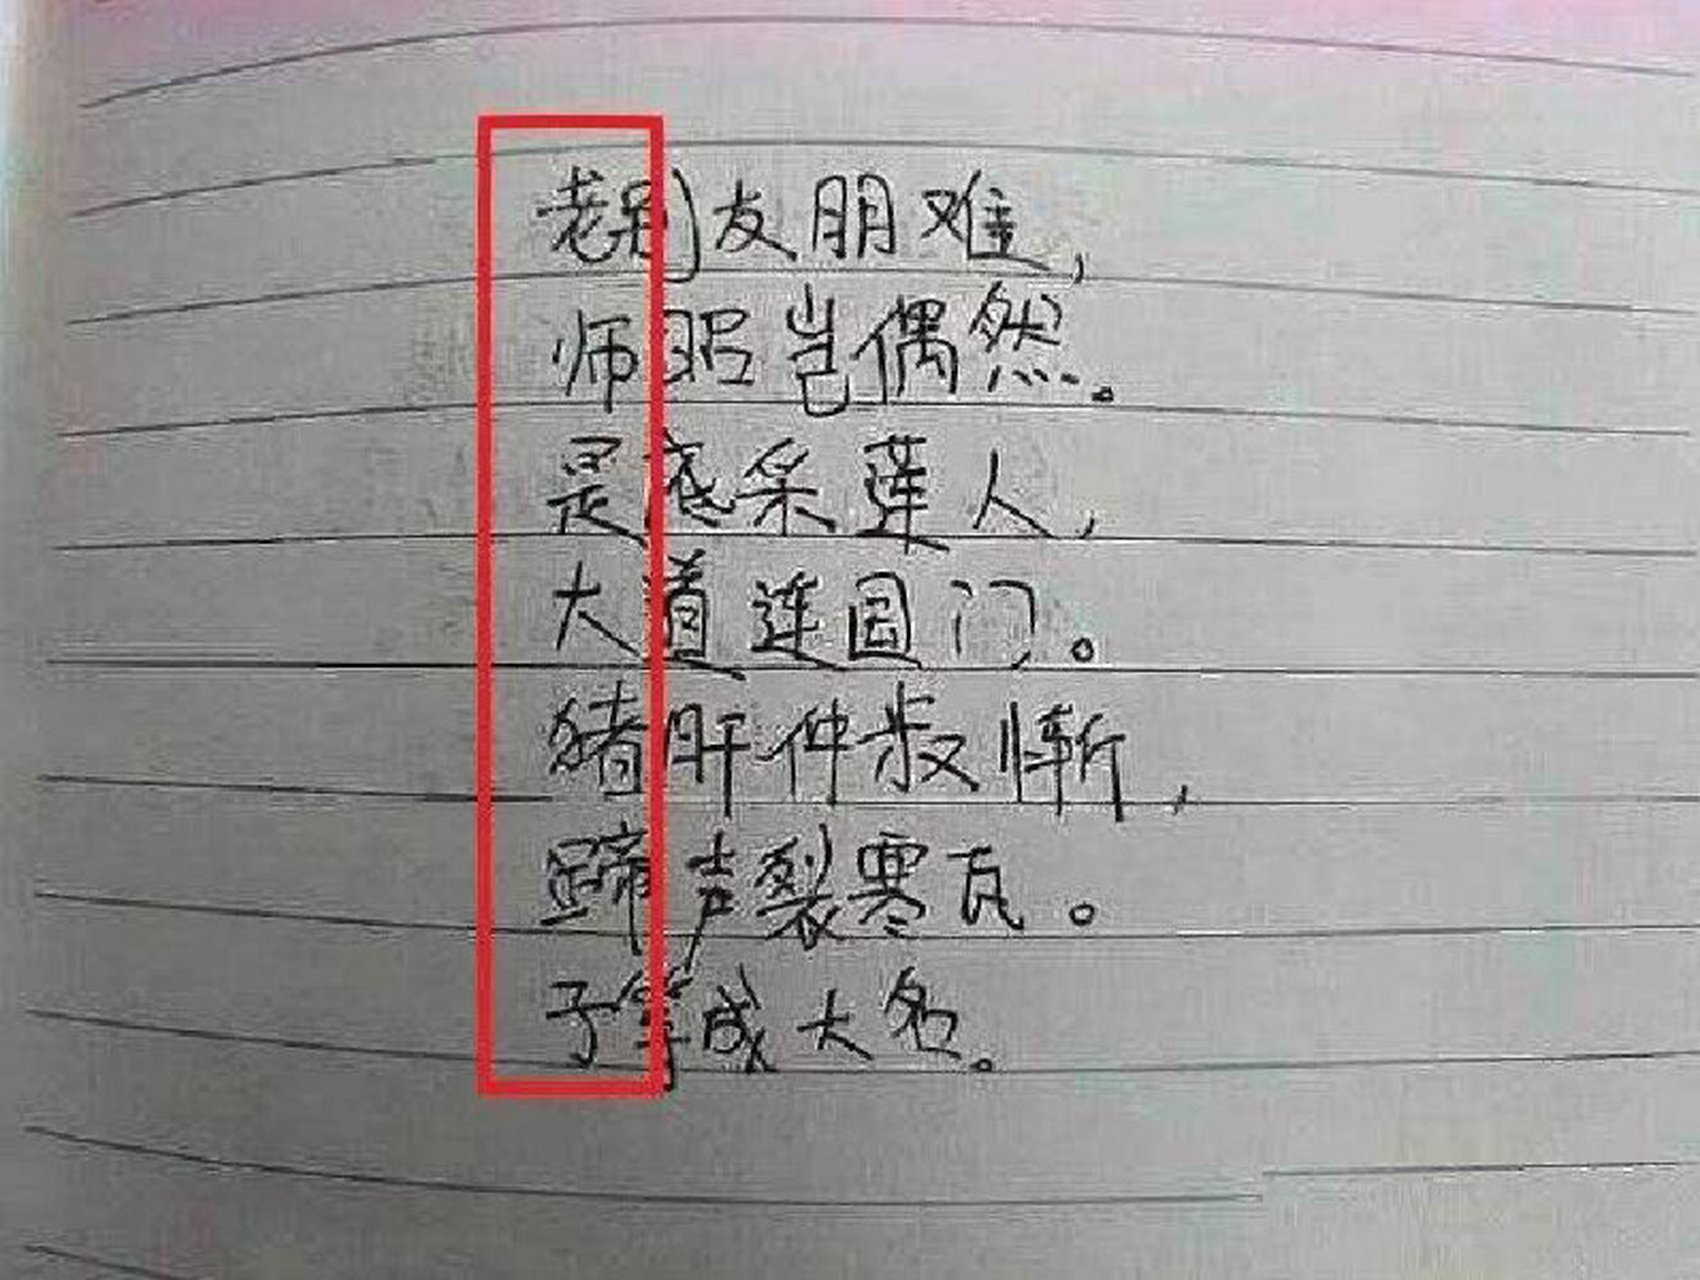 老别友朋难，
师昭岂偶然。
是底采莲人，
大道连国门。
猪肝仲叔惭，
蹄声裂寒瓦。
予等成大名。